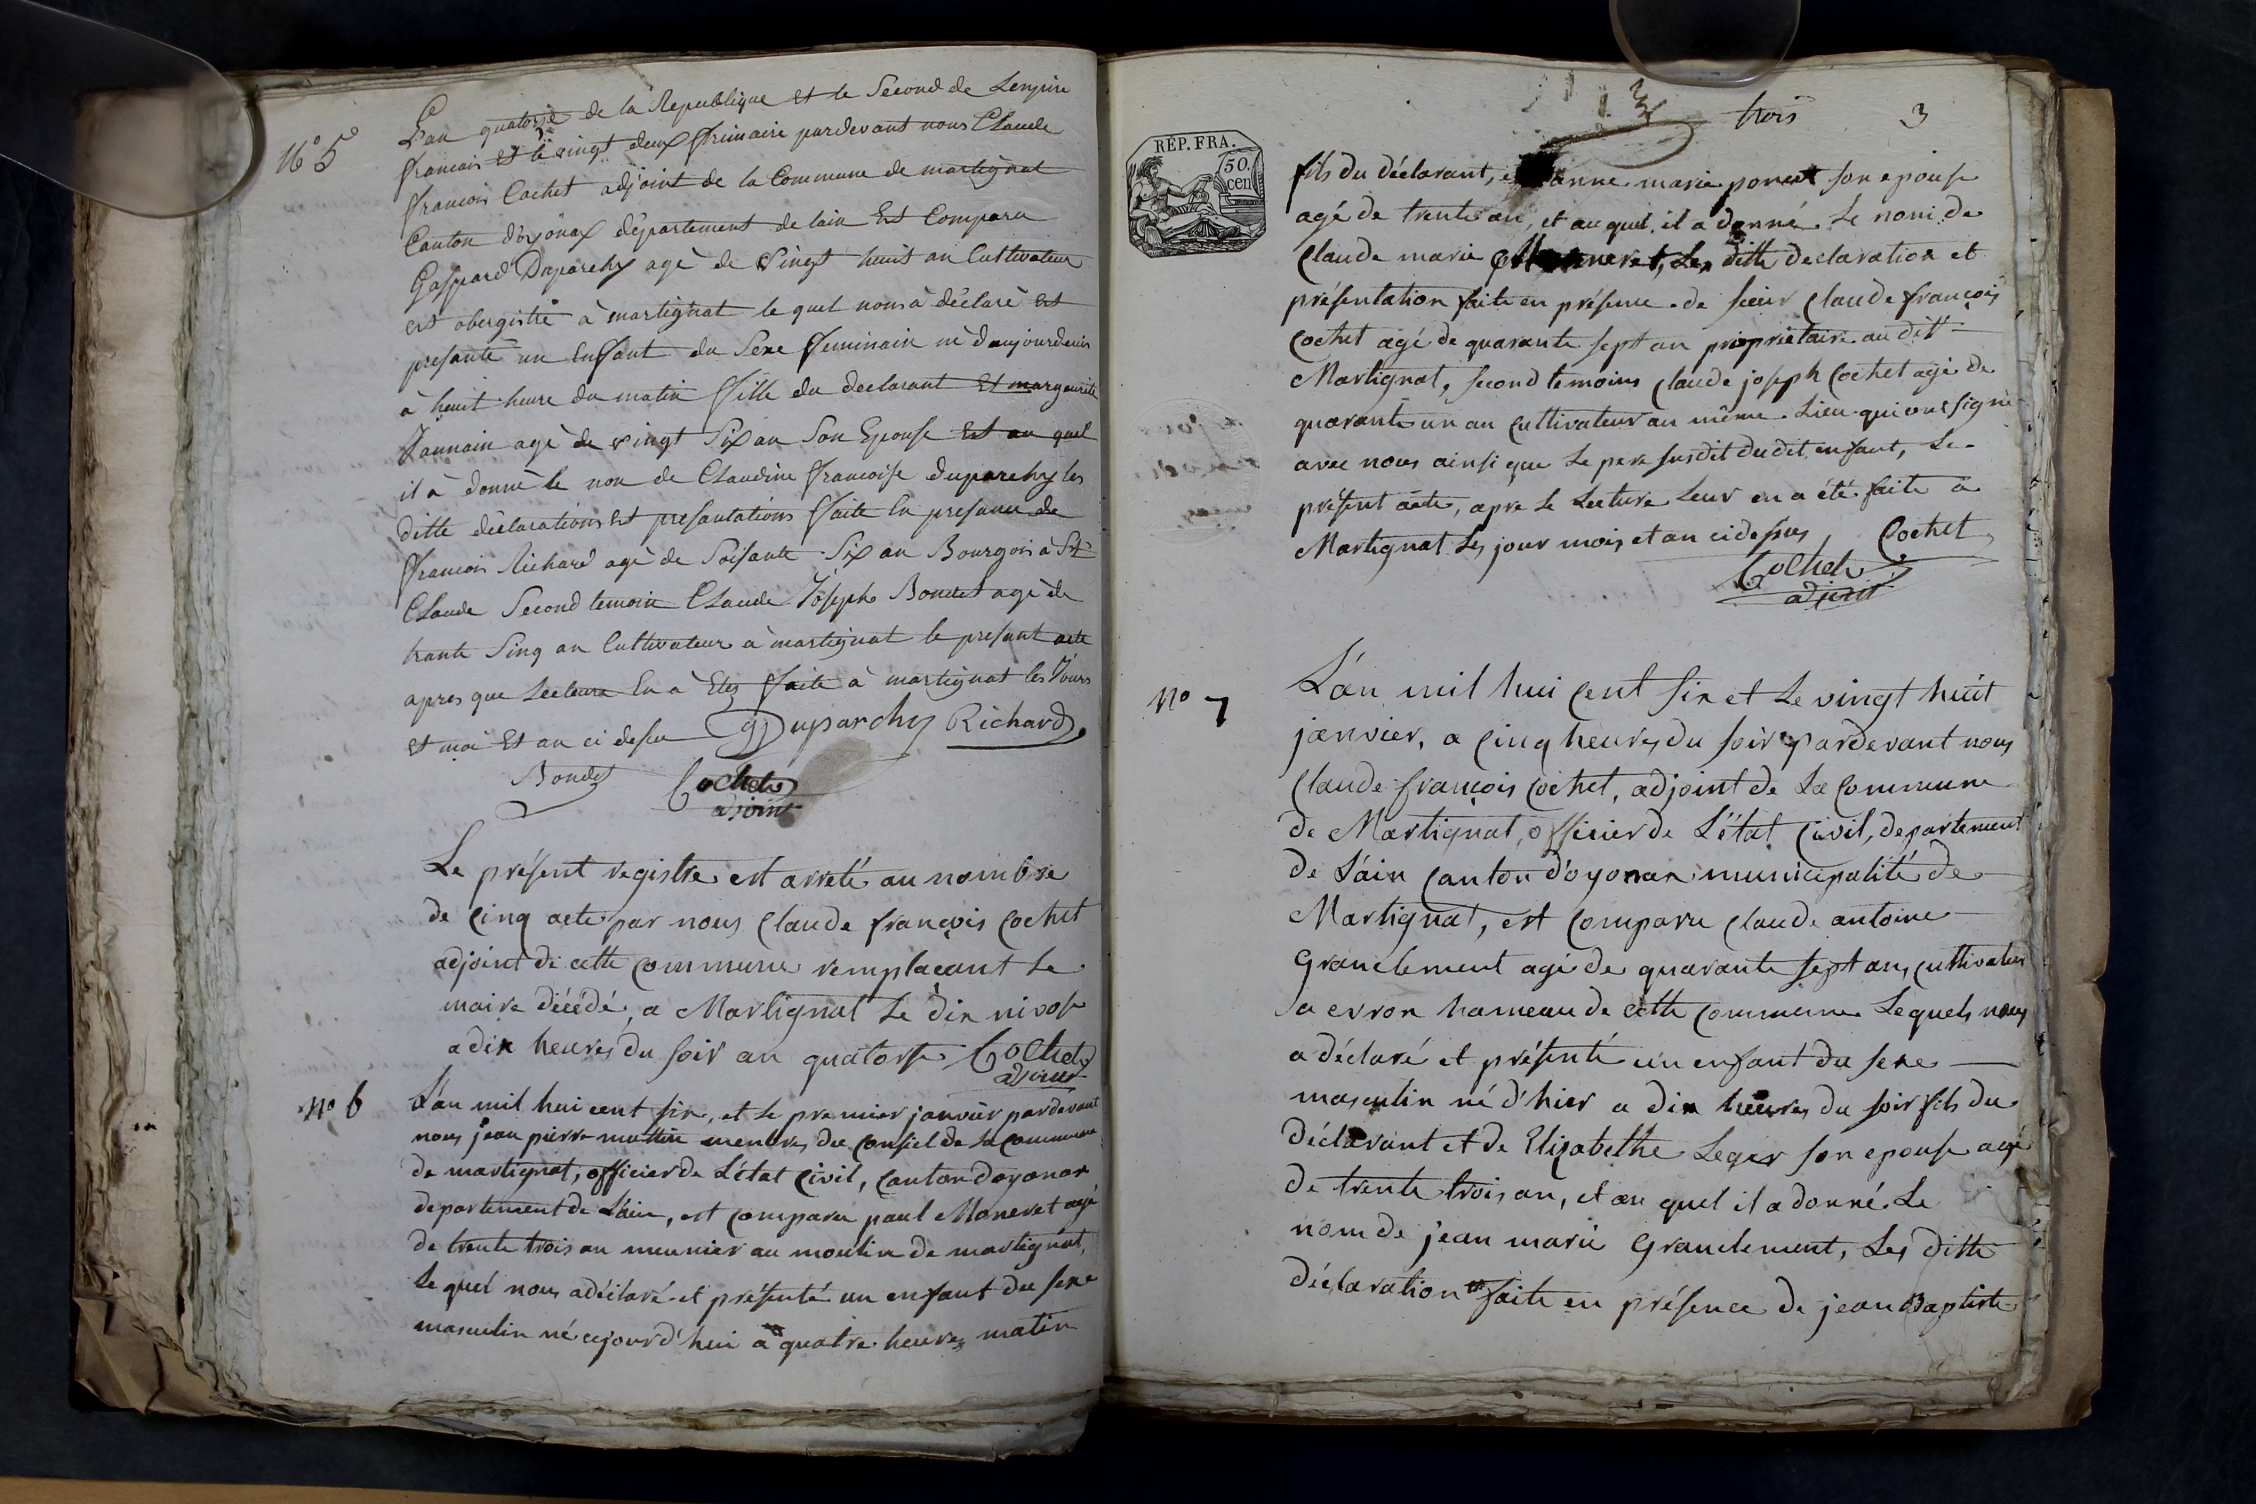 N° 5
L'an quatorze de la Republique et le Second de Lenpire
francois et le vingt deux frimaire pardevant nous Claude
francois Cochet adjoint de la Commune de martignat
Canton d'oyonax département de lain Est Comparu
Gaspard Duparchy agé de vingt huit an Cultivateur
et abergistre à martignat le quel nous à déclaré et
presanté un Enfant du Sexe feminain né daujourdeuis
à heuit heure du matin fille du declarant Et margueritte
Jannain agé de vingt Six an Son Epouse Et au quel
il à donné le non de Claudine francoise duparchy les
ditte déclarations et presantations faite En presance de
francois Richard agé de Soisante Six an Bourgois à St
Claude Second temoin Claude Joseph Bondet agé de
trante Sinq an Cultivateur à martignat le presant acte
apres que Lecteure En à Etez faite à martignat les Jours
et moi Et an ci desu GDuparchy Richard
Bondet Cochet
adjoint
Le présent registre est arreté au nombre
de cinq acte par nous Claude françois Cochet
adjoint de cette Commune remplaçant Le
maire décédé, a Martignat Le dix nivose
a dix heures du soir an quatorse Cochet
adjoint
N° 6
L'an mil hui cent six, et Le premier janvier pardevant
nous jean pierre muttin menbres du Conseil de La Commune
de martignat, officier de L'état Civil, Canton d'oyonax
departement de L'ain, est comparu paul Moneret agé
de trente trois an meunier au moulin de martignat,
Le quel nous a déclaré et présenté un enfant du sexe
masculin né cejourd'hui à quatre heures matin
trois 3
RÉP. FRA.
50.
cen
fils du déclarant, anne marie ponert son epouse
agé de trente an, et au quel il a donné Le nom de
Claude marie Moneret, Les ditte declaration et
présentation faite en présence de sieur Claude françois
Cochet agé de quarante sept an propriétaire au dit
Martignat, second temoins Claude joseph Cochet agé de
quarante un an Cultivateur au même Lieu qui ont signé
avec nous ainsi que Le pere susdit dudit enfant, Le
présent acte, apre Le Lecture Leur en a été faite a
Martignat Les jour mois et an cidessus Cochet
Cochet
adjoint
N° 7
L'an mil hui Cent six et Le vingt huit
janvier, a Cinq heures du soir pardevant nous
Claude françois Cochet, adjoint de La Commune
de Martignat, officier de L'état Civil, departement
de L'ain Canton d'oyonax municipalité de
Martignat, est comparu Claude antoine
Granclement agé de quarante sept ans, cultivateur
a evron hameau de cette commune Lequels nous
a déclaré et présenté un enfant du sexe
masculin né d'hier a dix heures du soir fils du
déclarant et de Elizabethe Leger son epouse agé
de trente trois an, et au quel il a donné Le
nom de jean marie Granclement, Les ditte
déclaration faite en présence de jean Baptiste